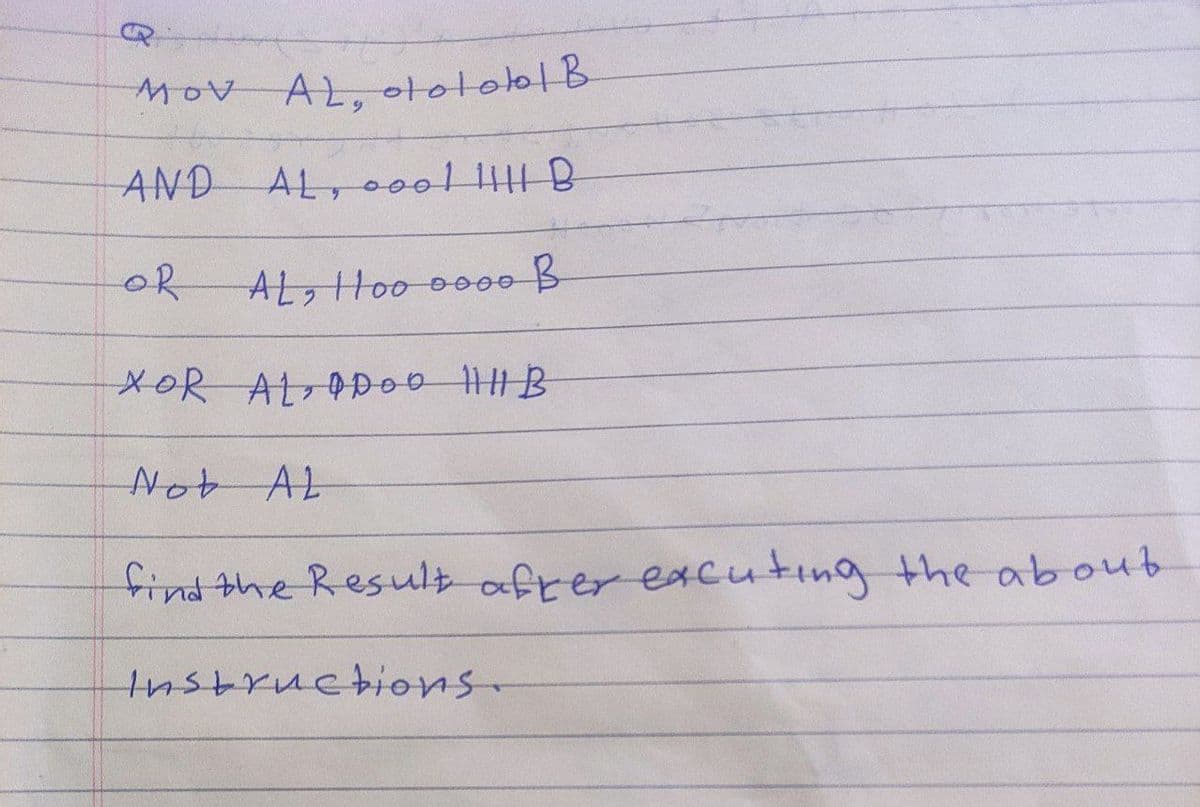 Q.
MOV AL, 01010101B
AND AL, 0001 1111 B
OR AL, 1100 0000 B
XOR AL, 0000 1111 B
Not AL
find the Result after excuting the about
Instructions.